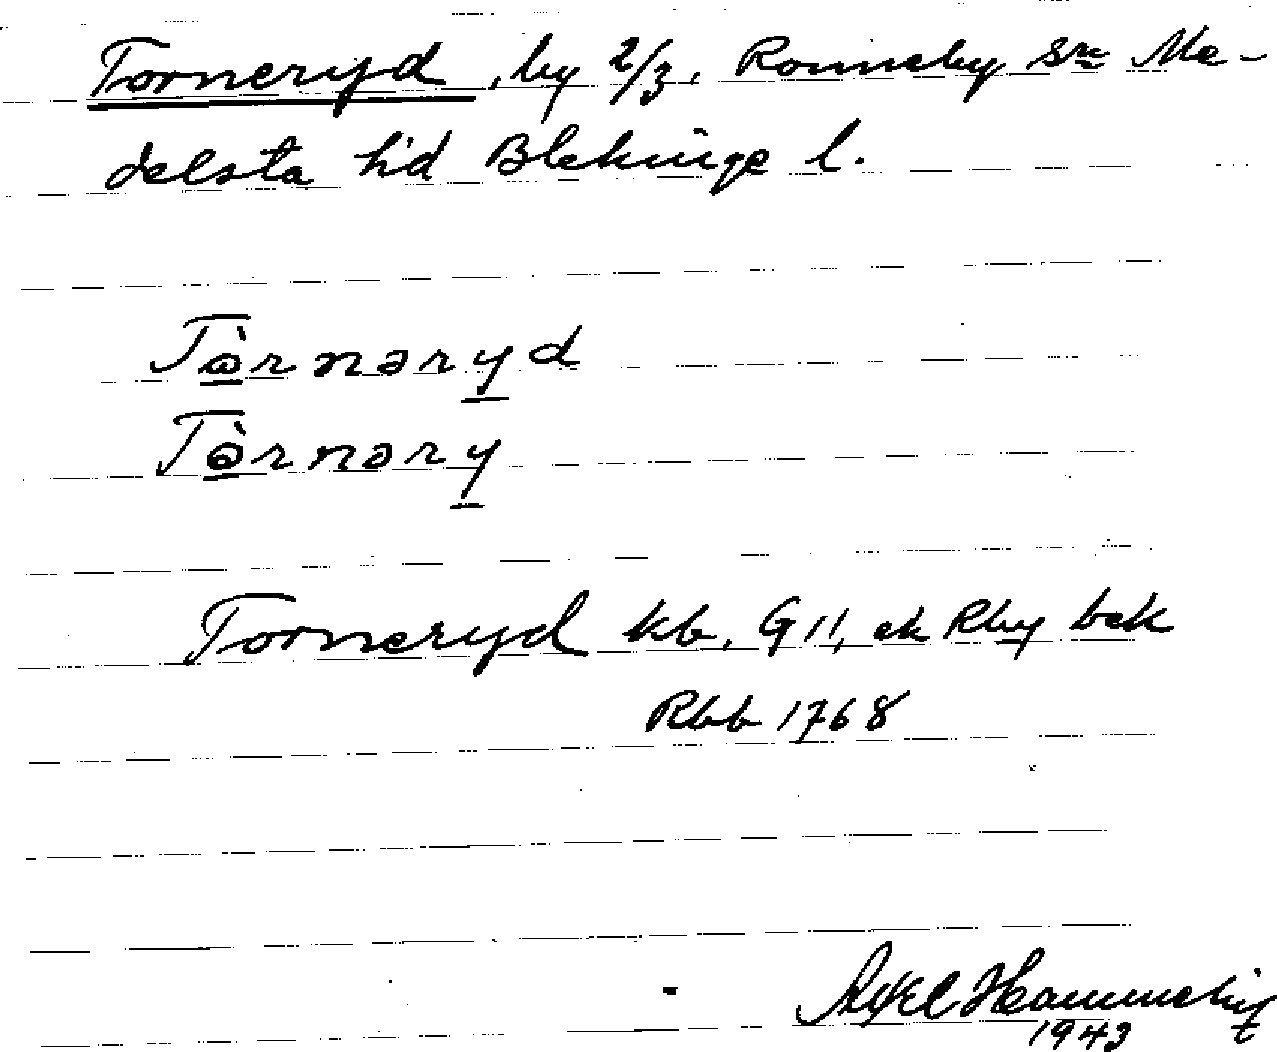 Torneryd, by 2/3, Ronneby sn Me-
delsta hd Blekinge l.
Tòrnəryd
Tòrnəry
Torneryd kb, G 11, ek Rby bek
Rbb 1768
Axel
1943